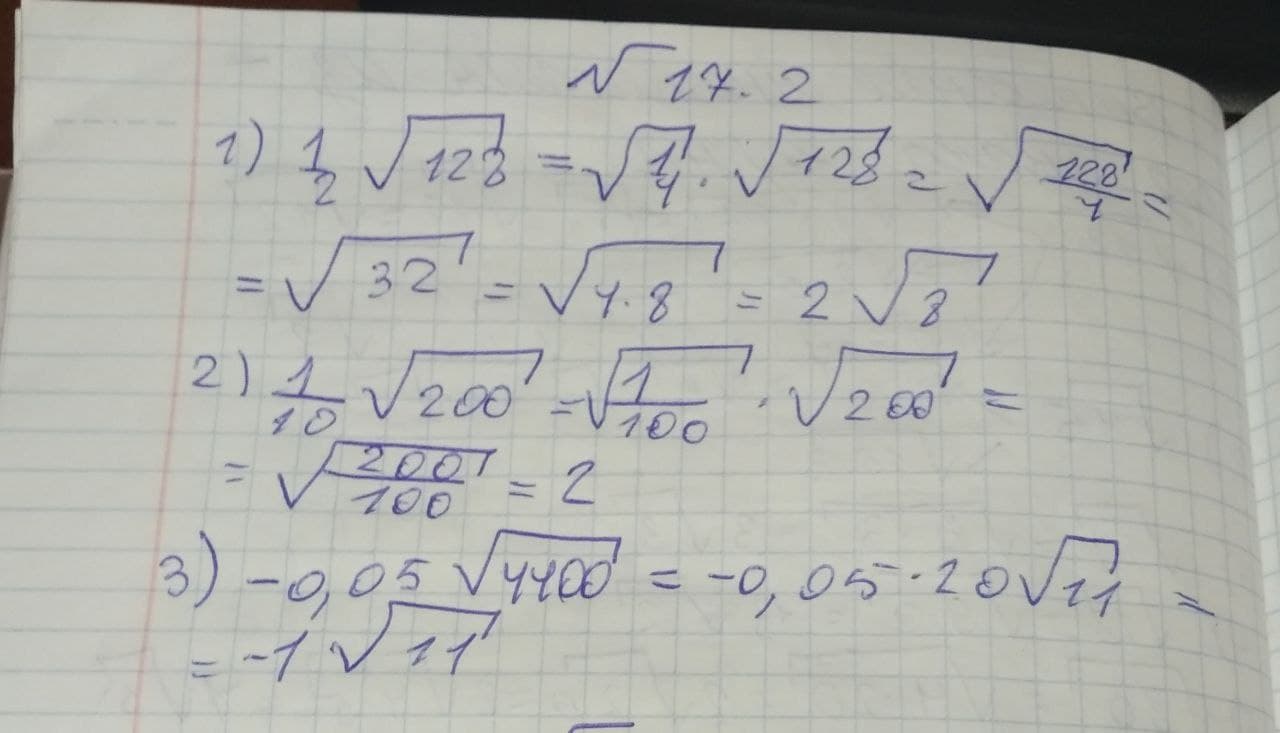 √ 17. 2
1) 1/2 √128 = √1/4 · √128 = √128/4 =
= √32 = √4·8 = 2 √8
2) 1/10 √200 = √1/100 · √200 =
= √200/100 = 2
3) -0,05 √4400 = -0,05·20√11 =
= -1 √11